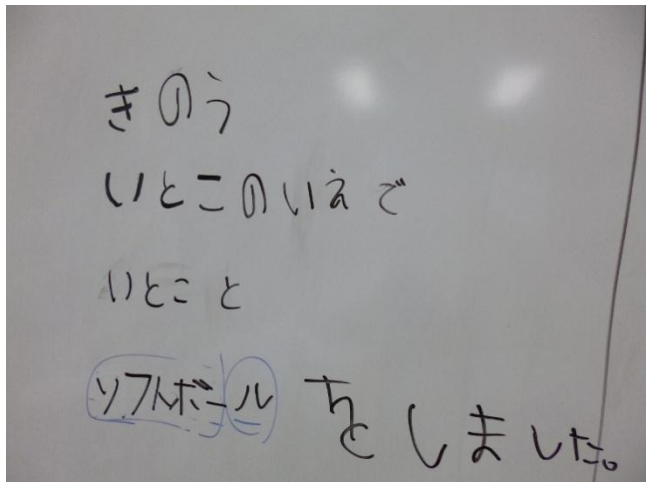 きのう
いとこのいえで
いとこと
ソフトボールをしました。